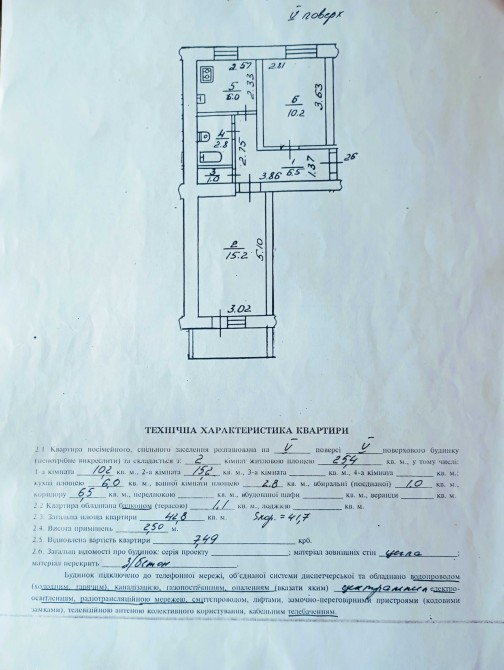 V поверх
2.57
2.81
5
6.0
2.33
6
10.2
3.63
4
2.8
2.75
1
6.5
1.37
26
3
1.0
3.86
2
15.2
5.10
3.02
ТЕХНІЧНА ХАРАКТЕРИСТИКА КВАРТИРИ
2.1 Квартира посімейного, спільного заселення розташована на V поверсі V поверхового будинку
(непотрібне викреслити) та складається з: 2 кімнат житловою площею 25,4 кв. м., у тому числі:
1-а кімната 10,2 кв. м., 2-а кімната 15,2 кв. м., 3-а кімната кв. м., 4-а кімната кв. м.,
кухні площею 6,0 кв. м., ванної кімнати площею 2.8 кв. м., вбиральні (поєднаної) 1,0 кв. м.,
коридору 6,5 кв. м., передпокою кв. м., вбудованої шафи кв. м., веранди кв. м.
2.2 Квартира обладнана балконом (терасою) 1,1 кв. м., лоджією кв. м.
2.3. Загальна площа квартири 42,8 кв. м. = 41,7
2.4. Висота приміщень 2,50 м.
2.5. Відновлена вартість квартири 749 крб.
2.6. Загальні відомості про будинок: серія проекту ; матеріал зовнішніх стін цегла ;
матеріал перекрить З/бетон
Будинок підключено до телефонної мережі, об'єднаної системи диспетчерської та обладнано водопроводом
(холодним, гарячим), каналізацією, газопостачанням, опаленням (вказати яким) електро-
освітленням, радіотрансляційною мережею, сміттєпроводом, ліфтами, замочно-переговорними пристроями (кодовими
замками), телевізійною антеною колективного користування, кабельним телебаченням.